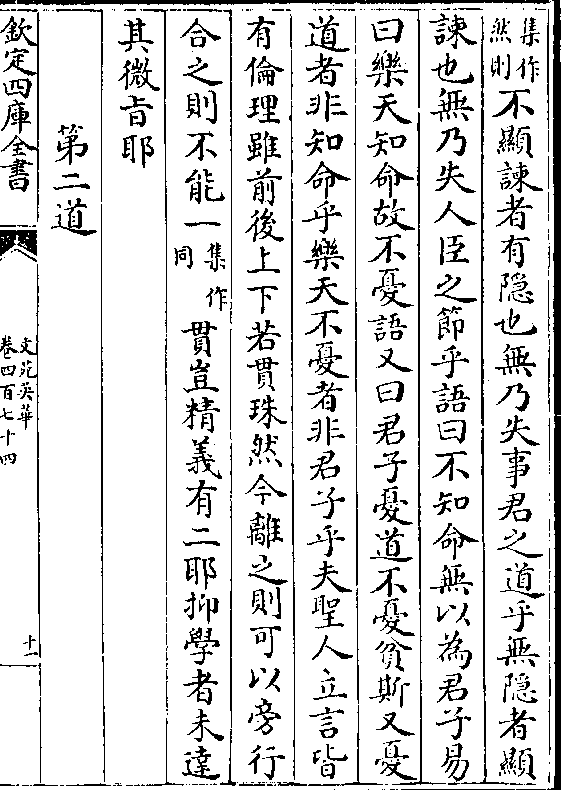 集作
然則
不顯諫者有隠也無乃失事君之道乎無隠者顯
諫也無乃失人臣之節乎語曰不知命無以為君子易
曰樂天知命故不憂語又曰君子憂道不憂貧斯又憂
道者非知命乎樂天不憂者非君子乎夫聖人立言皆
有倫理雖前後上下若貫珠然今離之則可以旁行
合之則不能一
集作
同
貫豈精義有二耶抑學者未達
其微㫖耶
第二道
欽定四庫全書
文苑英華
卷四百七十四
十一